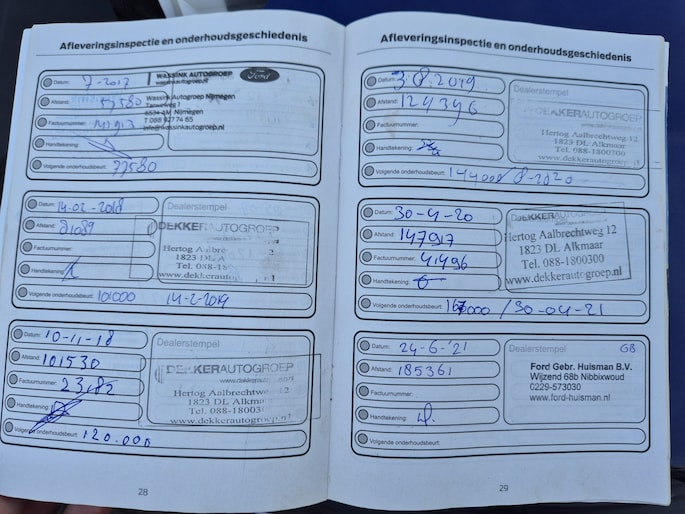 Afleveringsinspectie en onderhoudsgeschiedenis
Datum: 7-2017
WASSINK AUTOGROEP
wassinkautogroep.nl
Ford
Afstand: 57580
Wassink Autogroep Nijmegen
Tarweweg 1
6534 AM Nijmegen
T 088 9277465
info@wassinkautogroep.nl
Factuurnummer:
Handtekening:
Volgende onderhoudsbeurt: 77580
Datum: 14-02-2018
Dealerstempel
Afstand: 81089
DEKKERAUTOGROEP
Factuurnummer:
Hertog Aalbrec
1823 DL A
Tel. 088-18
www.dekkerau
Handtekening:
Volgende onderhoudsbeurt: 101000 14-2-2019
Datum: 10-11-18
Dealerstempel
Afstand: 101530
DEKKERAUTOGROEP
Factuurnummer: 23182
Hertog Aalbrechtweg 12
1823 DL Alkmaar
Tel. 088-1800300
www.dekkerautogroep.nl
Handtekening:
Volgende onderhoudsbeurt: 120.000
28
Afleveringsinspectie en onderhoudsgeschiedenis
Datum: 3-08-2019
Dealerstempel
Afstand: 124396
DEKKERAUTOGROEP
Factuurnummer:
Hertog Aalbrechtweg 12
1823 DL Alkmaar
Tel. 088-1800300
www.dekkerautogroep.nl
Handtekening:
Volgende onderhoudsbeurt: 144000/ 8-2020
Datum: 30-4-20
DEKKERAUTOGROEP
Afstand: 147917
Hertog Aalbrechtweg 12
1823 DL Alkmaar
Tel. 088-1800300
www.dekkerautogroep.nl
Factuurnummer: 41496
Handtekening:
Volgende onderhoudsbeurt: 167000 / 30-04-21
Datum: 24-6-'21
Dealerstempel
GB
Afstand: 185361
Ford Gebr. Huisman B.V.
Wijzend 68b Nibbixwoud
0229-573030
www.ford-huisman.nl
Factuurnummer:
Handtekening:
Volgende onderhoudsbeurt:
29